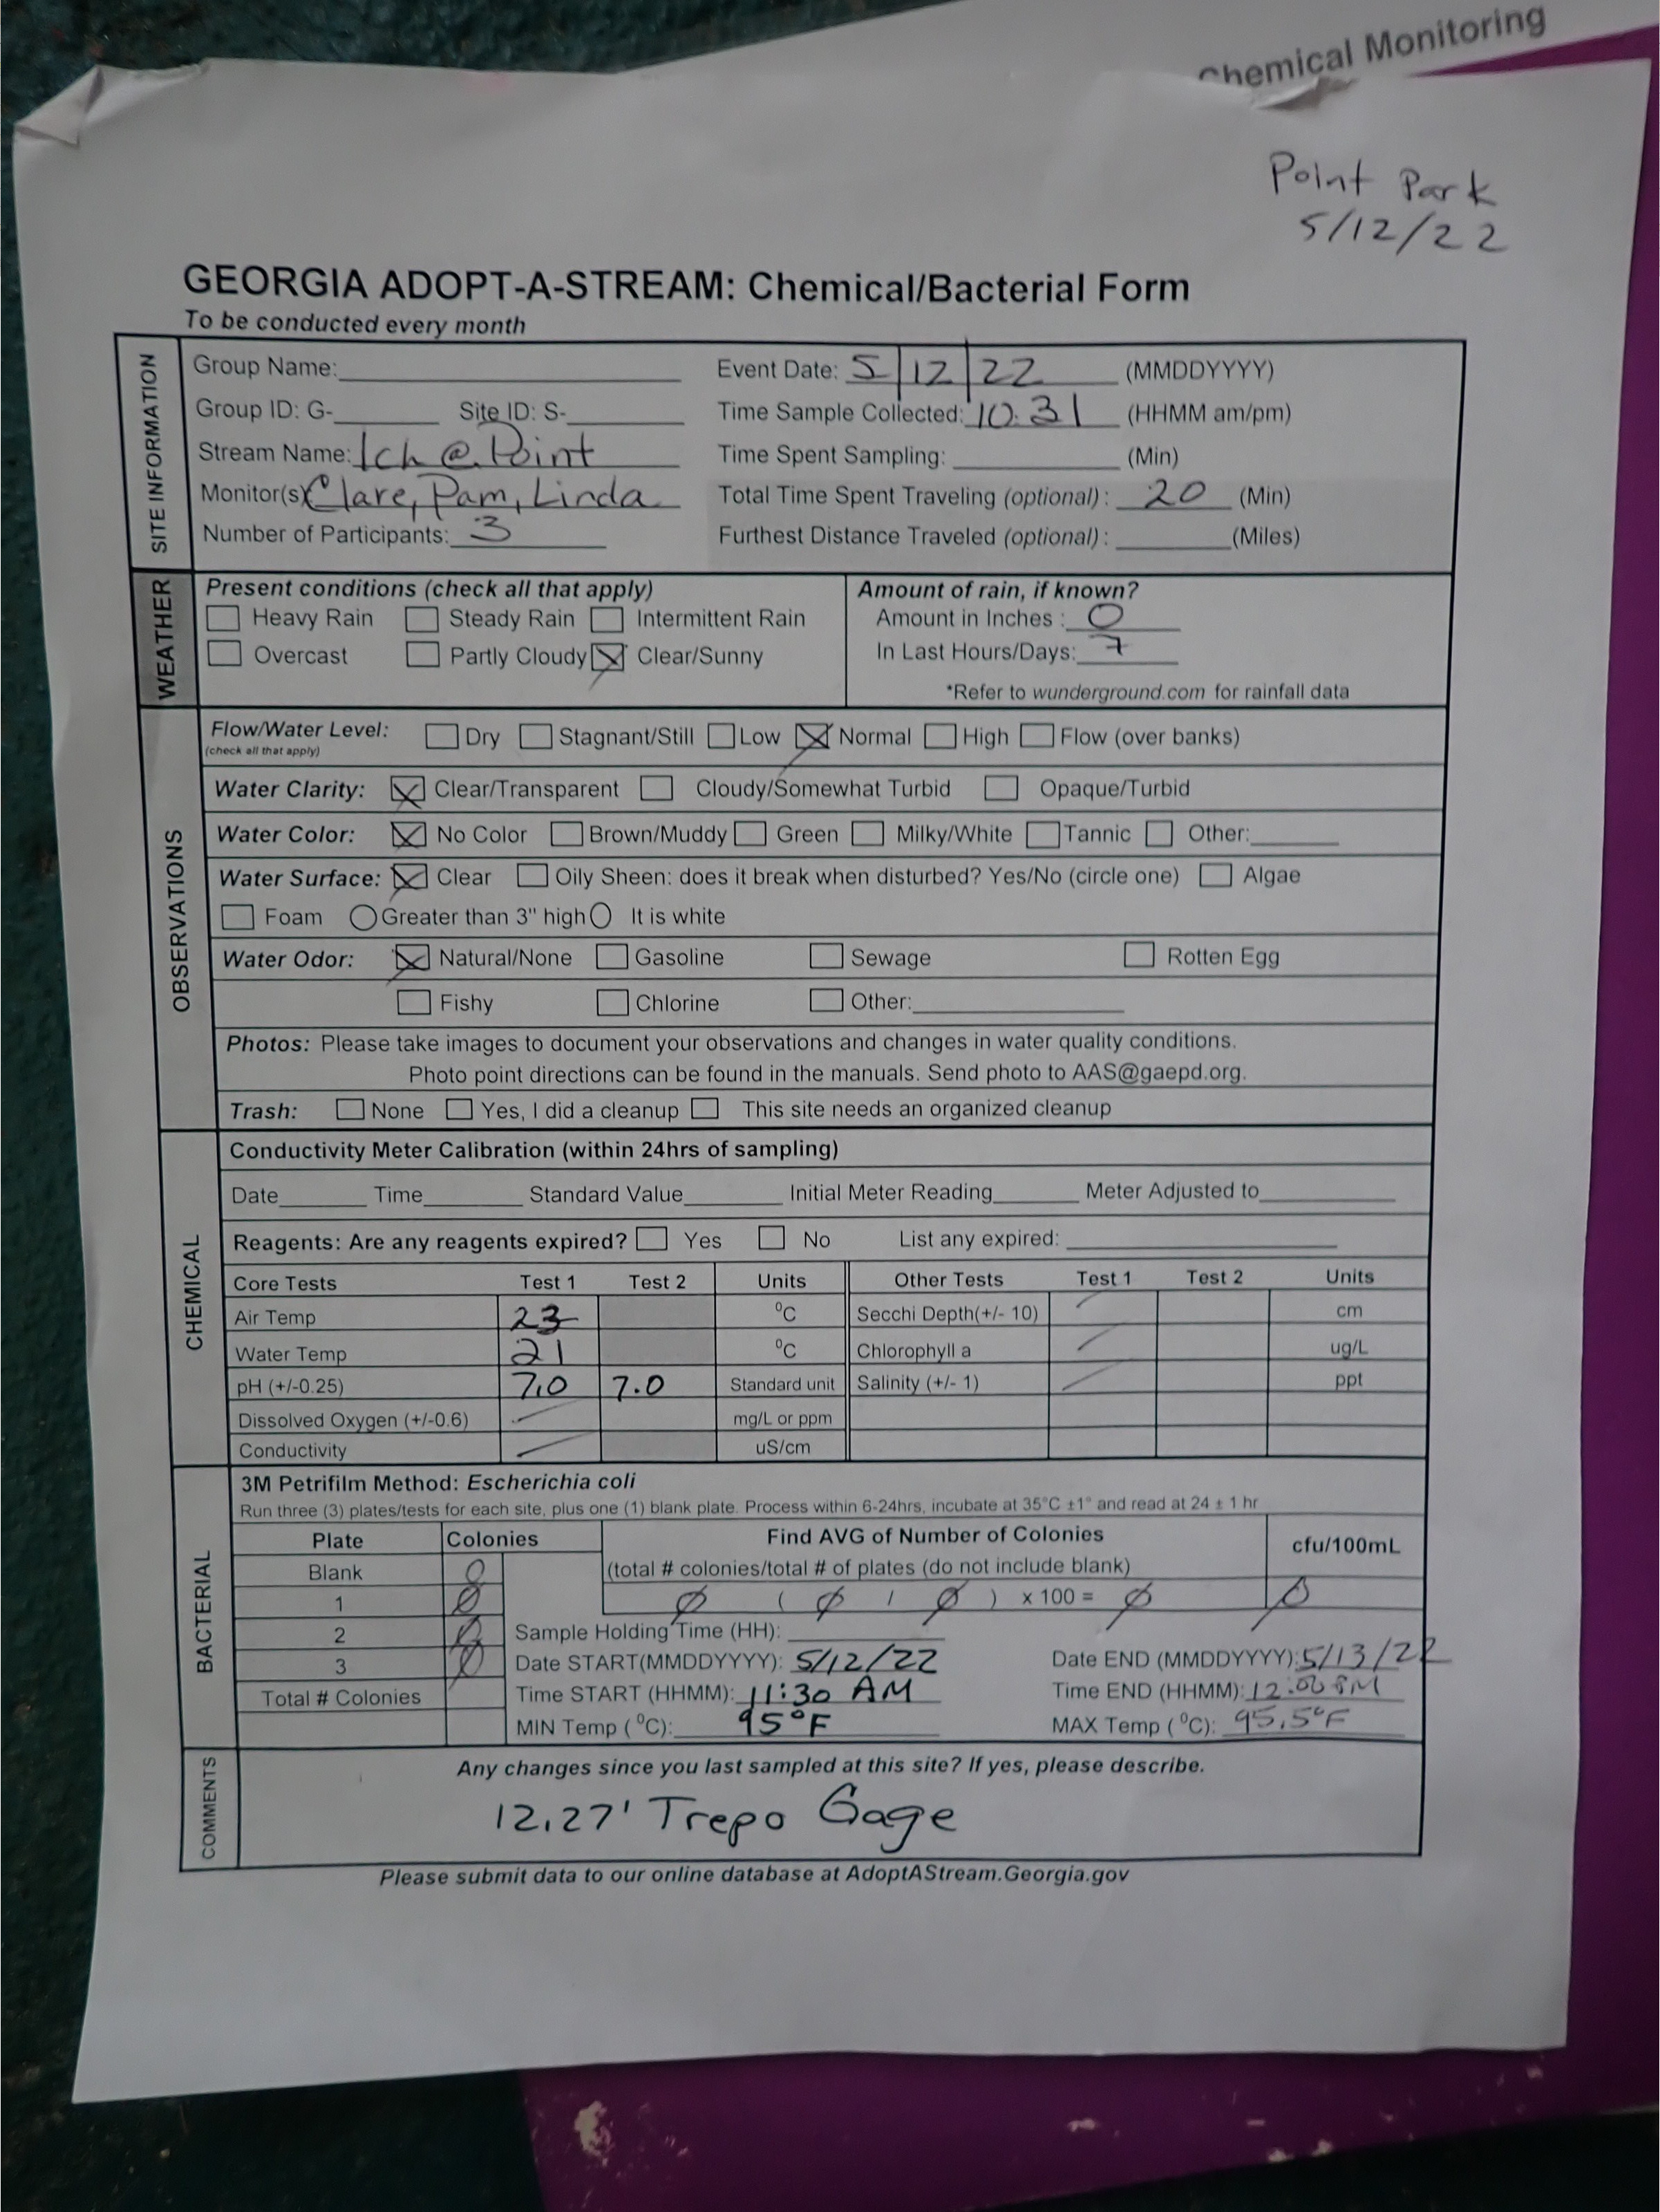 Chemical Monitoring
Point Park
5/12/22
GEORGIA ADOPT-A-STREAM: Chemical/Bacterial Form
To be conducted every month
SITE INFORMATION
Group Name: Event Date: 5/12/22 (MMDDYYYY)
Group ID: G- Site ID: S- Time Sample Collected: 10:31 (HHMM am/pm)
Stream Name: Ich @ Point Time Spent Sampling: (Min)
Monitor(s) Clare, Pam, Linda Total Time Spent Traveling (optional): 20 (Min)
Number of Participants: 3 Furthest Distance Traveled (optional): (Miles)
WEATHER
Present conditions (check all that apply) Amount of rain, if known?
Heavy Rain Steady Rain Intermittent Rain Amount in Inches: 0
Overcast Partly Cloudy Clear/Sunny In Last Hours/Days: 7
*Refer to wunderground.com for rainfall data
OBSERVATIONS
Flow/Water Level: Dry Stagnant/Still Low Normal High Flow (over banks)
(check all that apply)
Water Clarity: Clear/Transparent Cloudy/Somewhat Turbid Opaque/Turbid
Water Color: No Color Brown/Muddy Green Milky/White Tannic Other:
Water Surface: Clear Oily Sheen: does it break when disturbed? Yes/No (circle one) Algae
Foam Greater than 3" high It is white
Water Odor: Natural/None Gasoline Sewage Rotten Egg
Fishy Chlorine Other:
Photos: Please take images to document your observations and changes in water quality conditions.
Photo point directions can be found in the manuals. Send photo to AAS@gaepd.org.
Trash: None Yes, I did a cleanup This site needs an organized cleanup
CHEMICAL
Conductivity Meter Calibration (within 24hrs of sampling)
Date Time Standard Value Initial Meter Reading Meter Adjusted to
Reagents: Are any reagents expired? Yes No List any expired:
Core Tests Test 1 Test 2 Units Other Tests Test 1 Test 2 Units
Air Temp 23 °C Secchi Depth(+/- 10) cm
Water Temp 21 °C Chlorophyll a ug/L
pH (+/-0.25) 7.0 7.0 Standard unit Salinity (+/- 1) ppt
Dissolved Oxygen (+/-0.6) mg/L or ppm
Conductivity uS/cm
BACTERIAL
3M Petrifilm Method: Escherichia coli
Run three (3) plates/tests for each site, plus one (1) blank plate. Process within 6-24hrs, incubate at 35°C ±1° and read at 24 ± 1 hr
Plate Colonies Find AVG of Number of Colonies cfu/100mL
Blank 0 (total # colonies/total # of plates (do not include blank)
1 0 0 ( 0 / 0 ) x 100 = 0 0
2 0 Sample Holding Time (HH):
3 0 Date START(MMDDYYYY): 5/12/22 Date END (MMDDYYYY): 5/13/22
Total # Colonies Time START (HHMM): 11:30 AM Time END (HHMM): 12:00 PM
MIN Temp (°C): 95°F MAX Temp (°C): 95.5°F
COMMENTS
Any changes since you last sampled at this site? If yes, please describe.
12.27' Trepo Gage
Please submit data to our online database at AdoptAStream.Georgia.gov